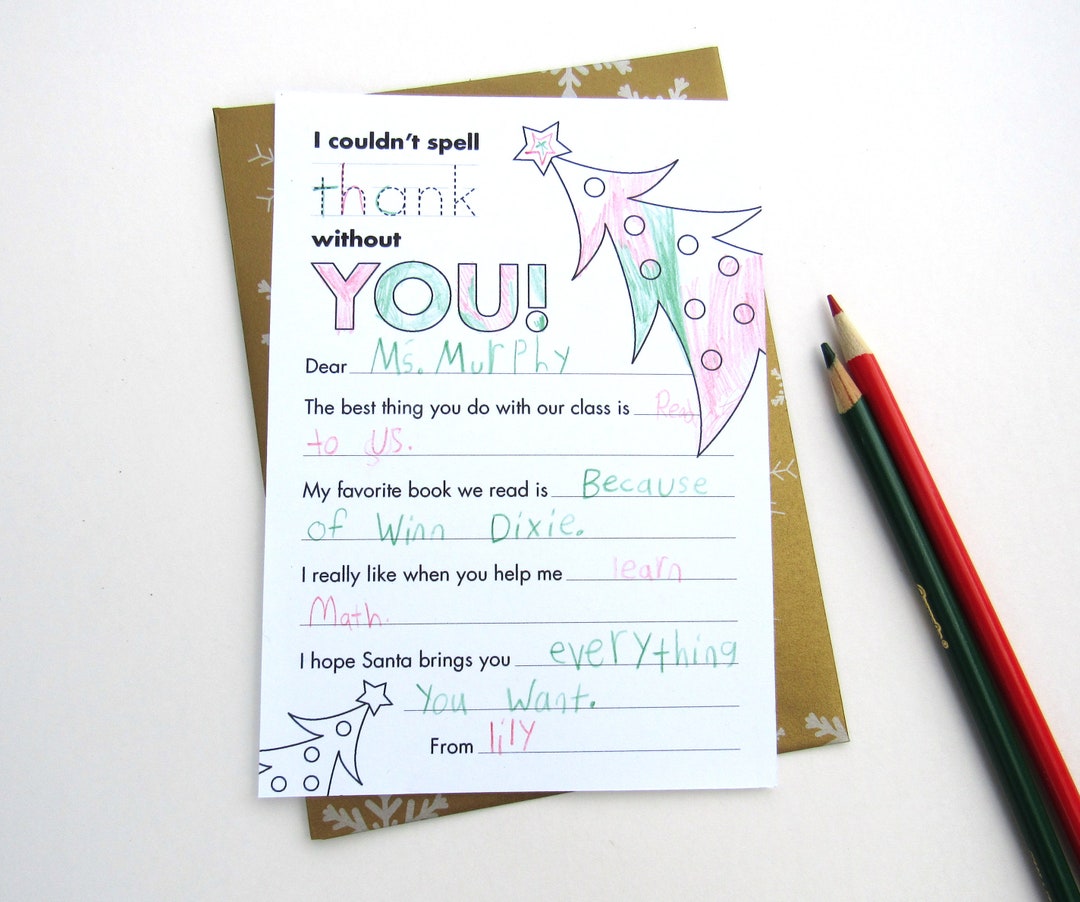 I couldn't spell
thank
without
YOU!
Dear Ms. Murphy
The best thing you do with our class is Read
to us.
My favorite book we read is Because
of Winn Dixie.
I really like when you help me learn
Math.
I hope Santa brings you everything
You Want.
From lily